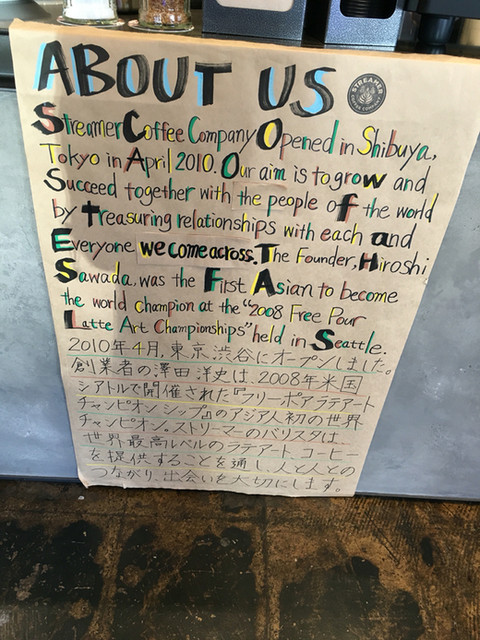 ABOUT US
STREAMER
COFFEE COMPANY
Streamer Coffee Company Opened in Shibuya,
Tokyo in April 2010. Our aim is to grow and
Succeed together with the people of the world
by treasuring relationships with each and
Everyone we come across. The Founder, Hiroshi
Sawada, was the First Asian to become
the world champion at the "2008 Free Pour
Latte Art Championships" held in Seattle.
2010年4月、東京渋谷にオープンしました。
創業者の澤田洋史は、2008年米国
シアトルで開催された『フリーポアラテアート
チャンピオンシップ』のアジア人初の世界
チャンピオン。ストリーマーのバリスタは
世界最高レベルのラテアート、コーヒー
を提供することを通し、人と人との
つながり、出会いを大切にします。